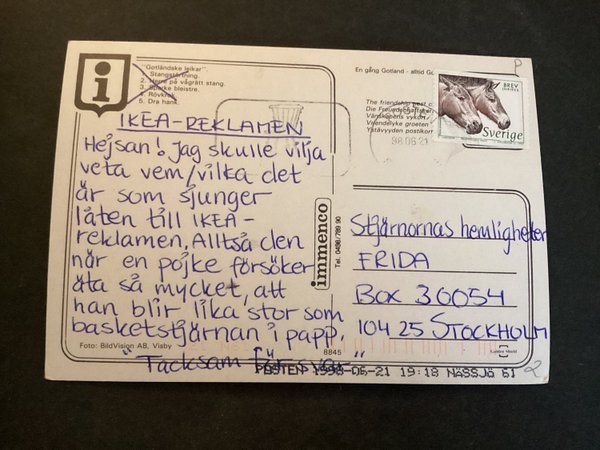 i
"Gotländske leikar".
1. Stangstörtning.
2. Herre på vågrätt stang.
3. Sparke bleistre.
4. Rövkrok.
5. Dra hank.
IKEA-REKLAMEN
Hejsan! Jag skulle vilja
veta vem/vilka det
är som sjunger
låten till IKEA-
reklamen, Alltså den
när en pojke försöker
äta så mycket, att
han blir lika stor som
basketstjärnan i papp.
"Tacksam för svar"
Foto: BildVision AB, Visby
8845
immenco
Tel. 0498/789 90
En gång Gotland - alltid
The friendship
Die Freundschaft
Vänskapens vykort
Vriendelyke groeten
Ystävyyden postikor
BREV
Sverige
98 06 21
Stjärnornas hemligheter
FRIDA
BOX 30054
104 25 STOCKHOLM
POSTEN 1998-06-21 19:18 NÄSSJÖ 61